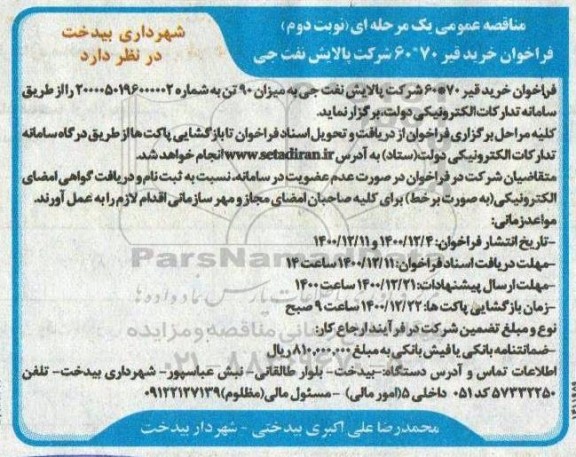 مناقصه عمومی یک مرحله ای (نوبت دوم)
فراخوان خرید قیر ۷۰*۶۰ شرکت پالایش نفت جی
شهرداری بیدخت
در نظر دارد
فراخوان خرید قیر ۷۰*۶۰ شرکت پالایش نفت جی به میزان ۹۰ تن به شماره ۲۰۰۰۰۵۰۱۹۶۰۰۰۰۰۲ را از طریق
سامانه تدارکات الکترونیکی دولت، برگزار نماید.
کلیه مراحل برگزاری فراخوان از دریافت و تحویل اسناد فراخوان تا بازگشایی پاکت ها از طریق درگاه سامانه
تدارکات الکترونیکی دولت (ستاد) به آدرس www.setadiran.ir انجام خواهد شد.
متقاضیان شرکت در فراخوان در صورت عدم عضویت در سامانه، نسبت به ثبت نام و دریافت گواهی امضای
الکترونیکی (به صورت بر خط) برای کلیه صاحبان امضای مجاز و مهر سازمانی اقدام لازم را به عمل آورند.
مواعد زمانی:
-تاریخ انتشار فراخوان: ۱۴۰۰/۱۲/۴ و ۱۴۰۰/۱۲/۱۱
-مهلت دریافت اسناد فراخوان: ۱۴۰۰/۱۲/۱۱ ساعت ۱۴
-مهلت ارسال پیشنهادات: ۱۴۰۰/۱۲/۲۱ ساعت ۱۴۰۰
-زمان بازگشایی پاکت ها: ۱۴۰۰/۱۲/۲۲ ساعت ۹ صبح
نوع و مبلغ تضمین شرکت در فرآیند ارجاع کار:
-ضمانتنامه بانکی یا فیش بانکی به مبلغ ۸۱۰.۰۰۰.۰۰۰ ریال
اطلاعات تماس و آدرس دستگاه:-بیدخت- بلوار طالقانی- نبش عباسپور- شهرداری بیدخت- تلفن
۵۷۳۳۲۲۵۰ کد ۰۵۱ داخلی ۵ (امور مالی) -مسئول مالی (مظلوم) ۰۹۱۲۲۱۲۷۱۳۹
محمدرضا علی اکبری بیدختی - شهردار بیدخت